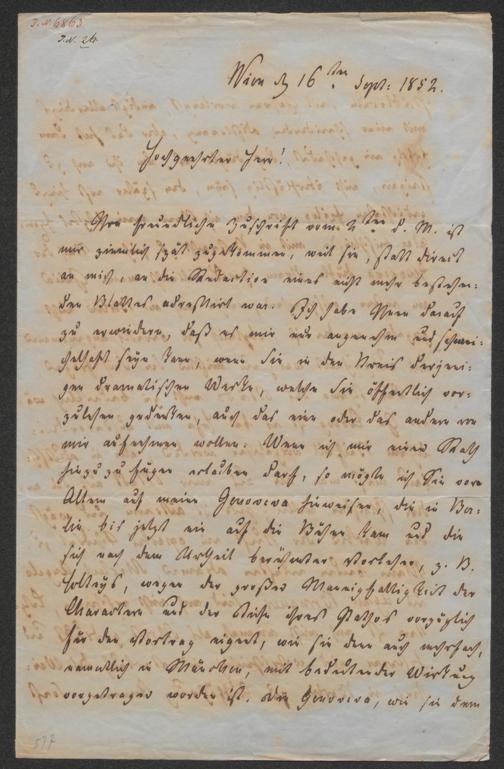 I.N. 6863
I.N. 24
Wien d. 16ten Sept: 1852.
Hochgeehrter Herr!
Ihre freundliche Zuschrift vom 2ten d. M. ist
mir ziemlich spät zugekommen, weil sie, statt direct
an mich, an die Redaction eines nicht mehr bestehen-
den Blattes adressirt war. Ich habe Ihnen darauf
zu erwiedern, daß es mir nur angenehm und schmei-
chelhaft seyn kann, wenn Sie in den Kreis derjeni-
gen dramatischen Werke, welche Sie öffentlich vor-
zulesen gedenken, auch das eine oder das andere von
mir aufnehmen wollen. Wenn ich mir einen Rath
hinzuzufügen erlauben darf, so mögte ich Sie vor
Allem auf meine Genoveva hinweisen, die in Ber-
lin bis jetzt nie auf die Bühne kam und die
sich nach dem Urtheil berühmter Vorleser, z. B.
Holteys, wegen der großen Mannigfaltigkeit der
Charactere und der Tiefe ihres Pathos vorzüglich
für den Vortrag eignet, wie sie denn auch mehrfach,
namentlich in München, mit bedeutender Wirkung
vorgetragen worden ist. Die Genoveva, wie sie dem
597